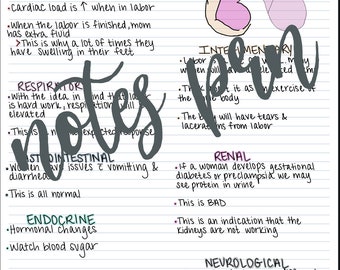 •Cardiac load is ↑ when in labor
•When the labor is finished, mom
has extra fluid
>This is why a lot of times they
have swelling in their feet
RESPIRATORY
•With the idea in mind that labor
is hard work, respirations will
elevated
•This is
response
GASTROINTESTINAL
•Women have issues c vomiting &
diarrhea
•This is all normal
ENDOCRINE
•Hormonal changes
•Watch blood sugar
INTEGUMENTARY
•Labor
as
exercise of
body
•The body will have tears &
lacerations from labor
RENAL
•If a woman develops gestational
diabetes or preclampsia we may
see protein in urine
•This is BAD
•This is an indication that the
kidneys are not working
NEUROLOGICAL
notes ben